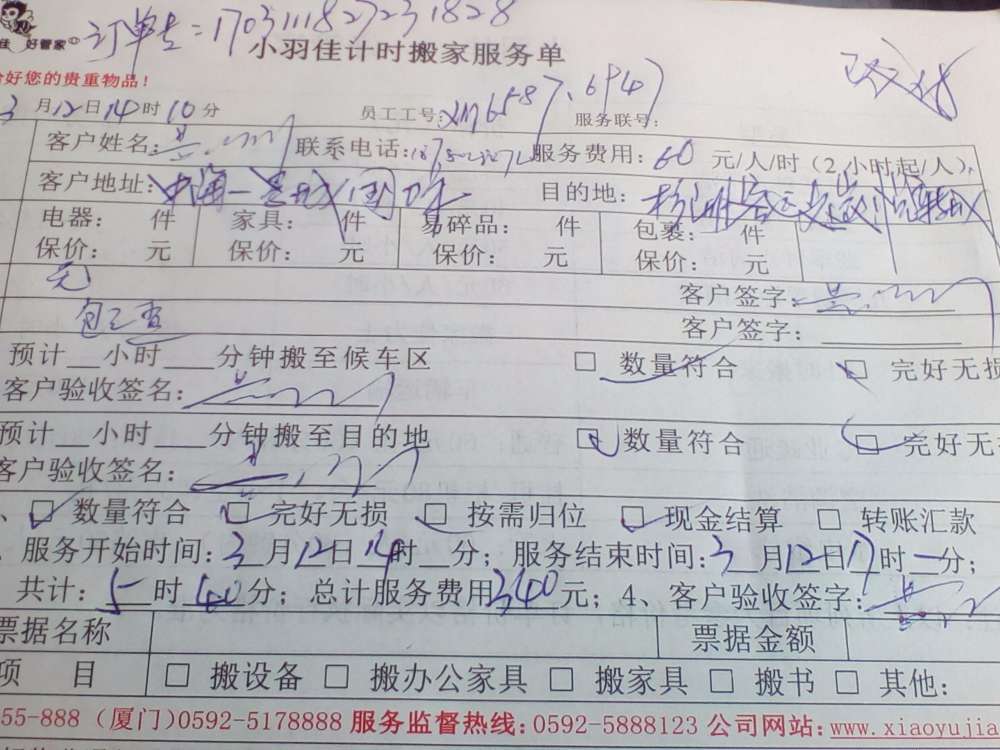 订单号=1703111827231828
佳 好管家
小羽佳计时搬家服务单
好您的贵重物品！
3月12日14时10分 员工工号: 服务联号:
客户姓名: 联系电话: 服务费用: 60 元/人/时（2小时起/人）,
客户地址: 目的地:
电器: 件 家具: 件 易碎品: 件 包裹: 件
保价: 元 保价: 元 保价: 元 保价: 元
无 客户签字:
客户签字:
预计 小时 分钟搬至候车区 □ 数量符合 □ 完好无损
客户验收签名:
预计 小时 分钟搬至目的地 □ 数量符合 □ 完好无
客户验收签名:
、□ 数量符合 □ 完好无损 □ 按需归位 □ 现金结算 □ 转账汇款
服务开始时间: 3月12日14时 分; 服务结束时间: 3月12日17时 分;
共计: 5时40分; 总计服务费用340元; 4、客户验收签字:
票据名称 票据金额
项 目 □ 搬设备 □ 搬办公家具 □ 搬家具 □ 搬书 □ 其他:
55-888（厦门)0592-5178888 服务监督热线: 0592-5888123 公司网站: www.xiaoyujia